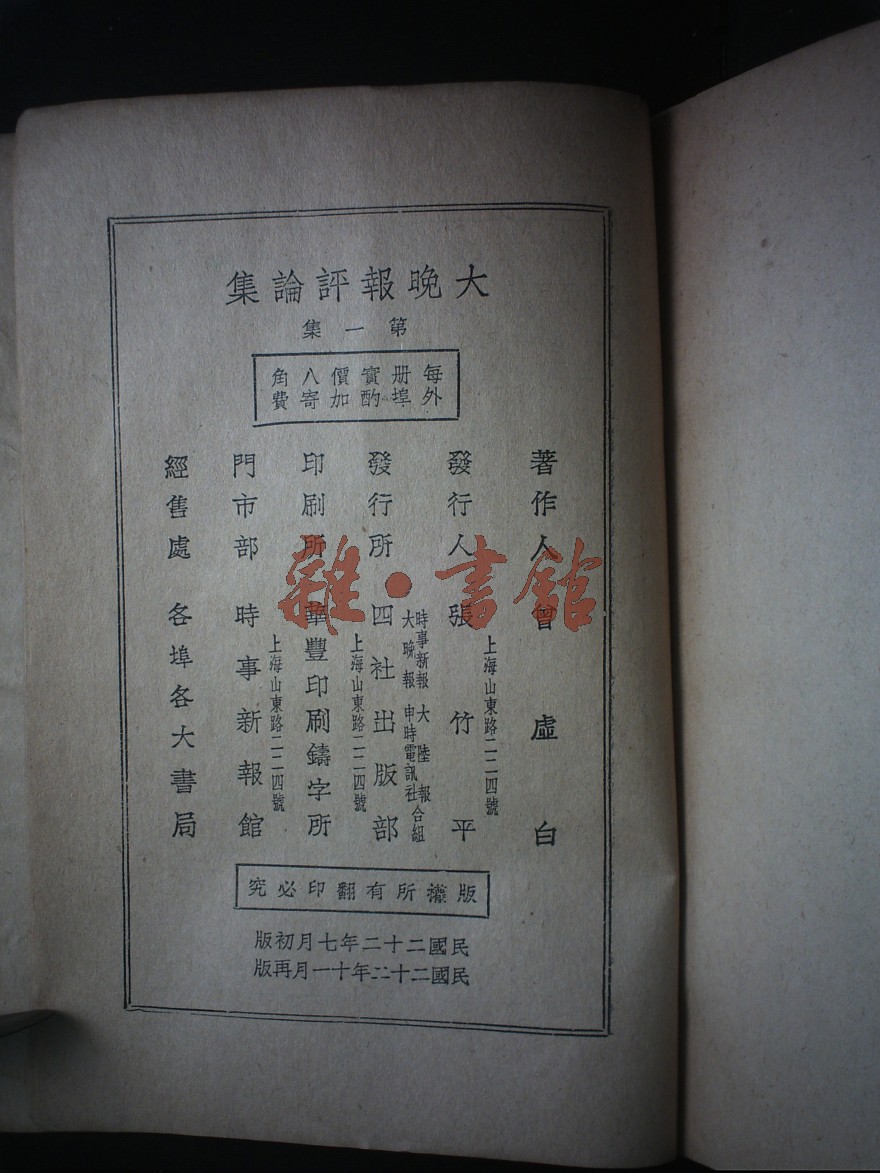 大晚報評論集
第一集
每册實價八角
外埠酌加寄費
著作人 曾虛白
發行人 張竹平
上海山東路二二四號
發行所 四社出版部
時事新報 大陸報
大晚報 申時電訊社
合組
印刷所 華豐印刷鑄字所
上海山東路二二四號
門市部 時事新報館
上海山東路二二四號
經售處 各埠各大書局
版權所有翻印必究
民國二十二年七月初版
民國二十二年十一月再版
雜·書館